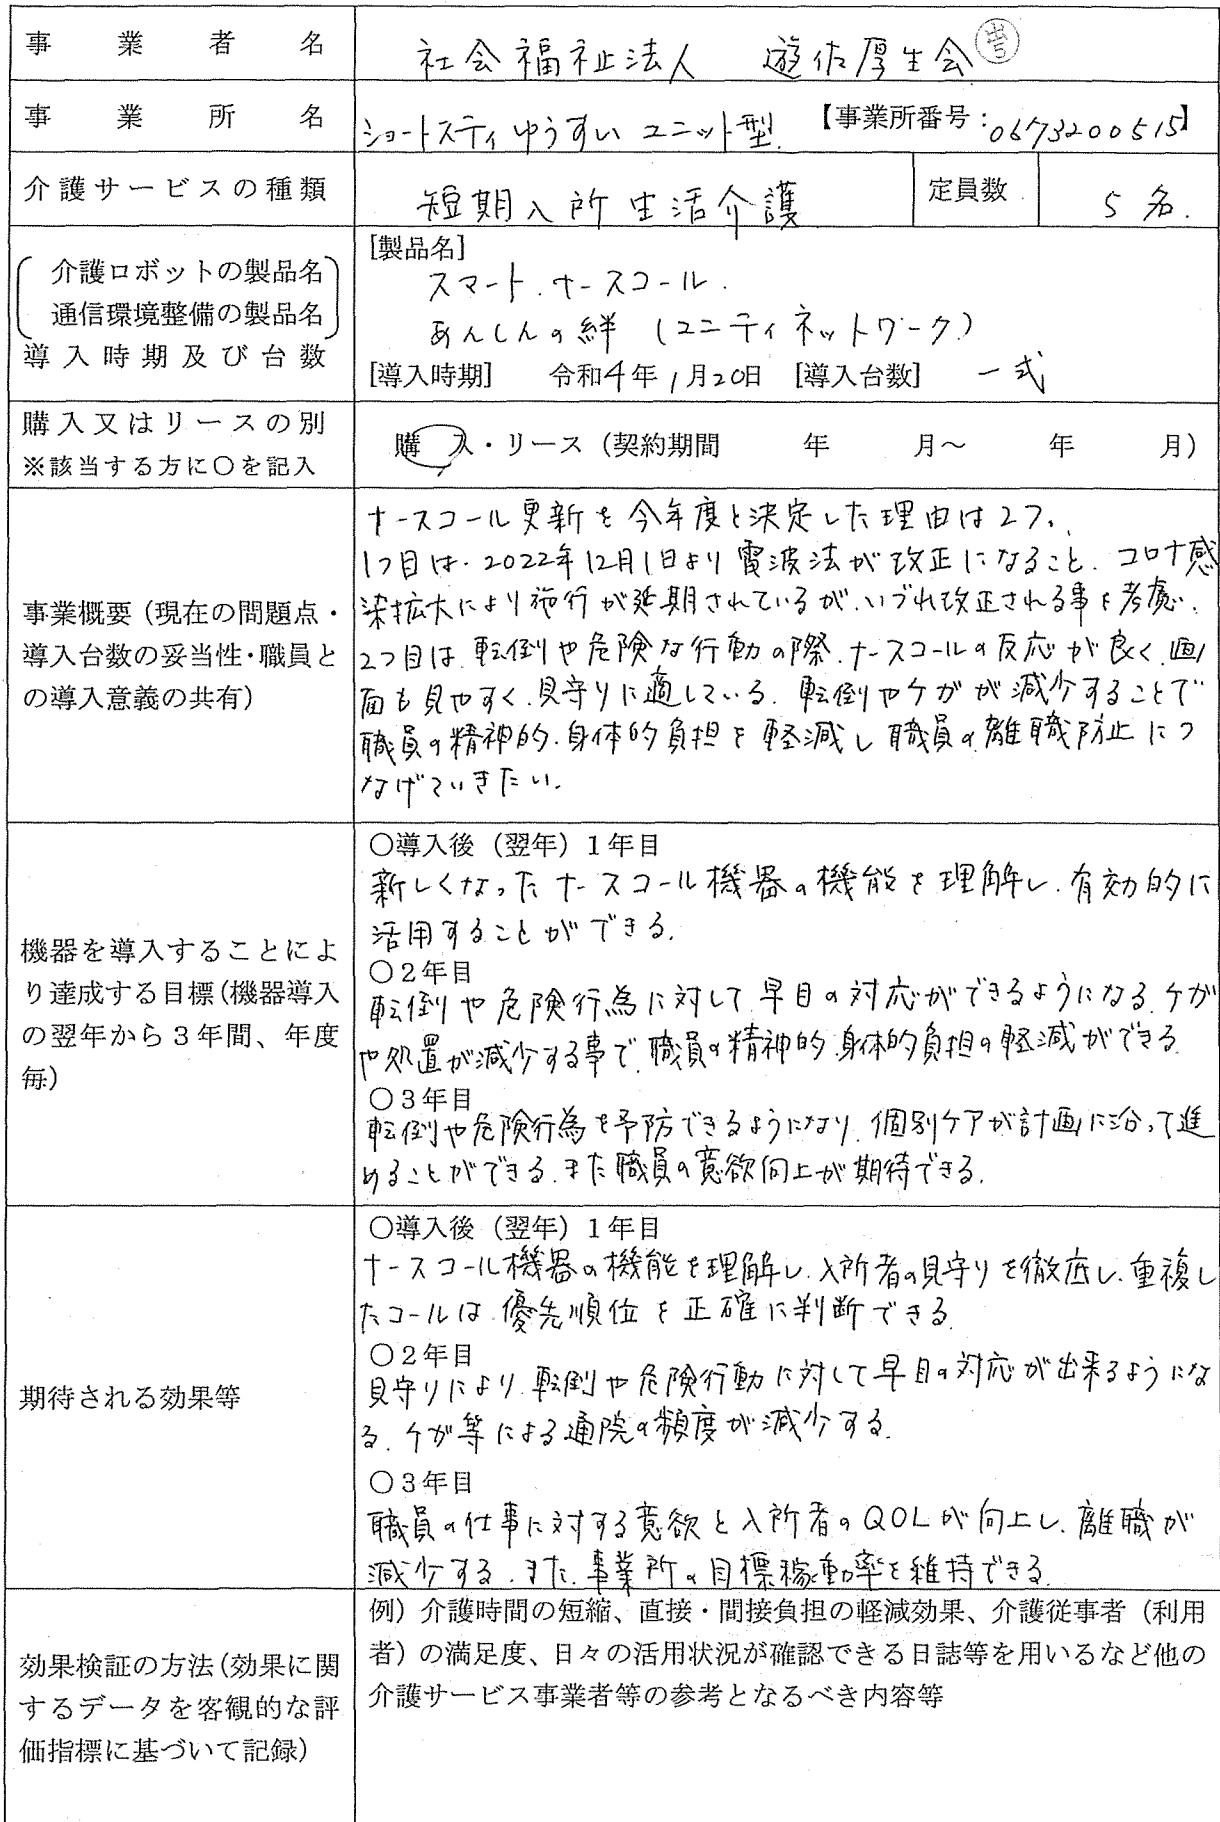 事業者名 社会福祉法人 遊佐厚生会
事業所名 ショートスティゆうすい ユニット型 【事業所番号：0673200515】
介護サービスの種類 短期入所生活介護 定員数 5名.
介護ロボットの製品名
通信環境整備の製品名
導入時期及び台数
[製品名]
スマート.ナースコール.
あんしんの絆 (ユニティネットワーク)
[導入時期] 令和4年1月20日 [導入台数] 一式
購入又はリースの別
※該当する方に○を記入
購入・リース（契約期間 年 月～ 年 月）
事業概要（現在の問題点・
導入台数の妥当性・職員と
の導入意義の共有）
ナースコール更新を今年度と決定した理由は2つ.
1つ目は.2022年12月1日より電波法が改正になること.コロナ感
染拡大により施行が延期されているが.いづれ改正される事を考慮.
2つ目は.転倒や危険な行動の際.ナースコールの反応が良く.画
面も見やすく.見守りに適している.転倒やケガが減少することで
職員の精神的.身体的負担を軽減し職員の離職防止につ
なげていきたい.
機器を導入することによ
り達成する目標（機器導入
の翌年から３年間、年度
毎）
○導入後（翌年）１年目
新しくなったナースコール機器の機能を理解し.有効的に
活用することができる.
○２年目
転倒や危険行為に対して早目の対応ができるようになる.ケガ
や処置が減少する事で.職員の精神的.身体的負担の軽減ができる.
○３年目
転倒や危険行為を予防できるようになり.個別ケアが計画に沿って進
めることができる.また職員の意欲向上が期待できる.
期待される効果等
○導入後（翌年）１年目
ナースコール機器の機能を理解し.入所者の見守りを徹底し.重複し
たコールは.優先順位を正確に判断できる.
○２年目
見守りにより.転倒や危険行動に対して早目の対応が出来るようにな
る.ケガ等による通院の頻度が減少する.
○３年目
職員の仕事に対する意欲と入所者のQOLが向上し.離職が
減少する.また.事業所の目標稼動率を維持できる.
効果検証の方法（効果に関
するデータを客観的な評
価指標に基づいて記録）
例）介護時間の短縮、直接・間接負担の軽減効果、介護従事者（利用
者）の満足度、日々の活用状況が確認できる日誌等を用いるなど他の
介護サービス事業者等の参考となるべき内容等